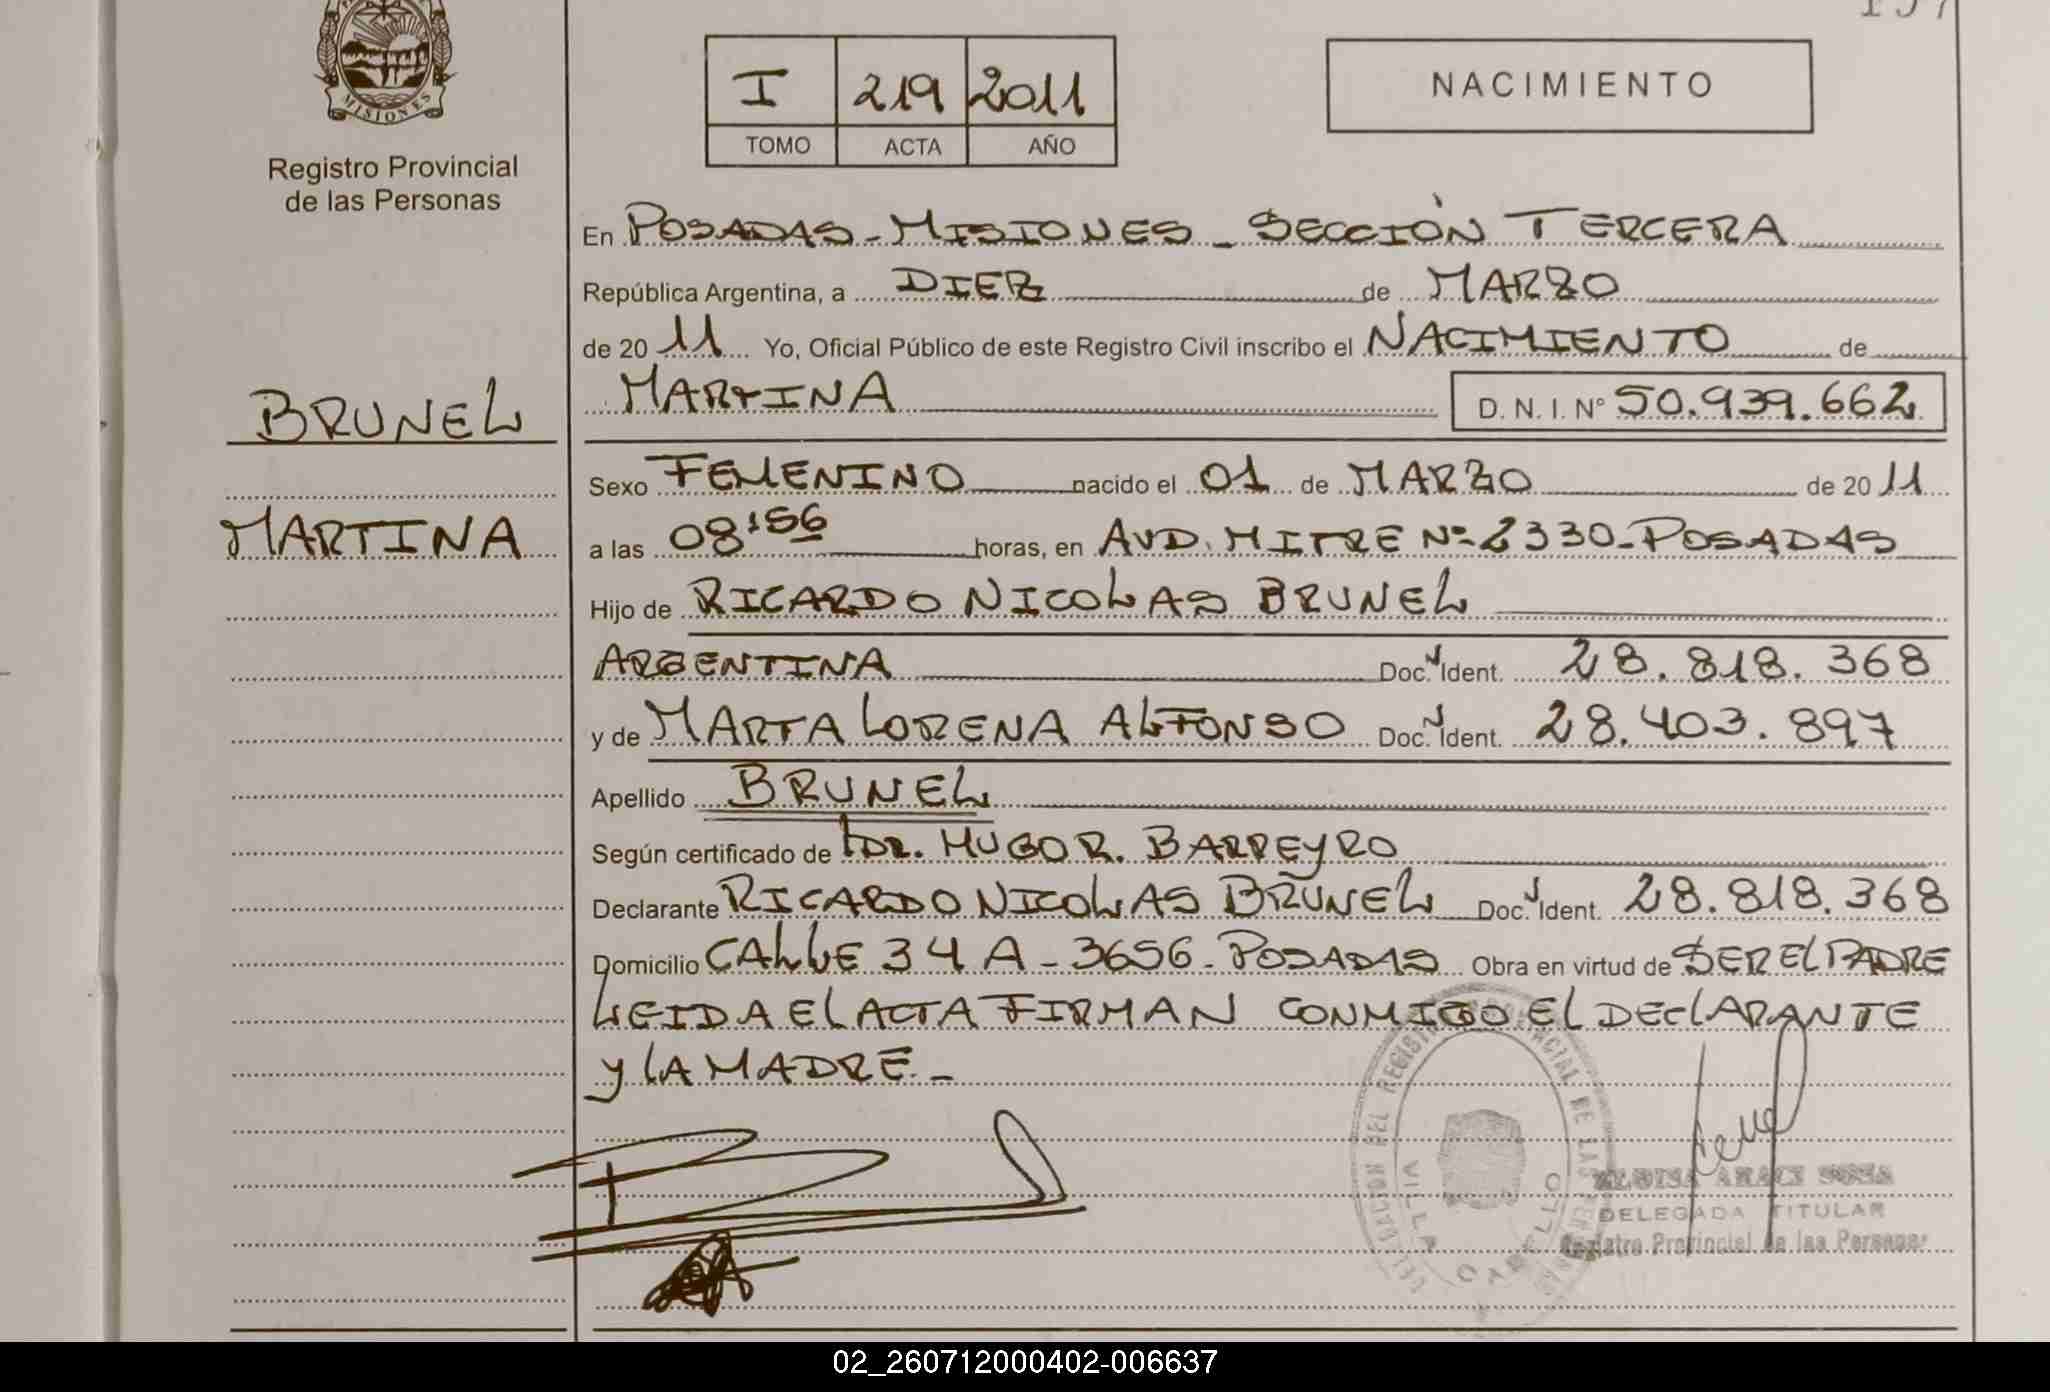 MISIONES
Registro Provincial
de las Personas
I 219 2011
TOMO ACTA AÑO
NACIMIENTO
En POSADAS - MISIONES - SECCIÓN TERCERA
República Argentina, a DIEZ de MARZO
de 20 11 Yo, Oficial Público de este Registro Civil inscribo el NACIMIENTO de
BRUNEL
MARTINA D. N. I. Nº 50.939.662
Sexo FEMENINO nacido el 01 de MARZO de 20 11
MARTINA
a las 08:56 horas, en AVD. MITRE Nº 2330 - POSADAS
Hijo de RICARDO NICOLAS BRUNEL
ARGENTINA Doc. Ident. 28.818.368
y de MARTA LORENA ALFONSO Doc. Ident. 28.403.897
Apellido BRUNEL
Según certificado de DR. HUGO R. BARREYRO
Declarante RICARDO NICOLAS BRUNEL Doc. Ident. 28.818.368
Domicilio CALLE 34 A - 3656 - POSADAS Obra en virtud de SER EL PADRE
LEIDA EL ACTA FIRMAN CONMIGO EL DECLARANTE
Y LA MADRE -
DELEGACION DEL REGISTRO PROVINCIAL DE LAS PERSONAS
VILLA CABELLO
ELOISA ARACI SOSA
DELEGADA TITULAR
Registro Provincial de las Personas
02_260712000402-006637